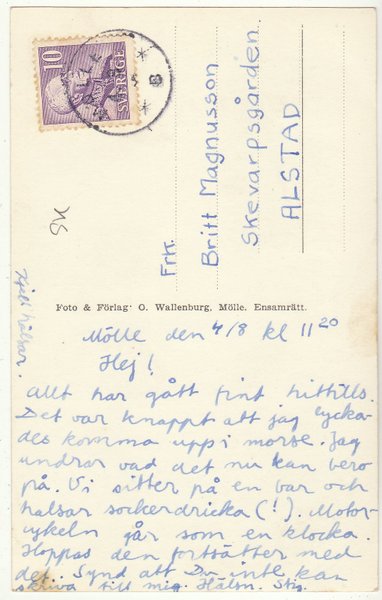 10
SVERIGE
MÖLLE
Sk
Frk.
Britt Magnusson
Skevarpsgården.
ALSTAD
Foto & Förlag: O. Wallenburg, Mölle. Ensamrätt.
Kjell hälsar.
Mölle den 4/8 kl 11 20
Hej!
Allt har gått fint hittills.
Det var knappt att jag lycka-
des komma upp i morse. Jag
undrar vad det nu kan bero
på. Vi sitter på en bar och
halsar sockerdricka (!). Motor-
cykeln går som en klocka.
Hoppas den fortsätter med
det. Synd att Du inte kan
skriva till mig. Hälsn. Stig.